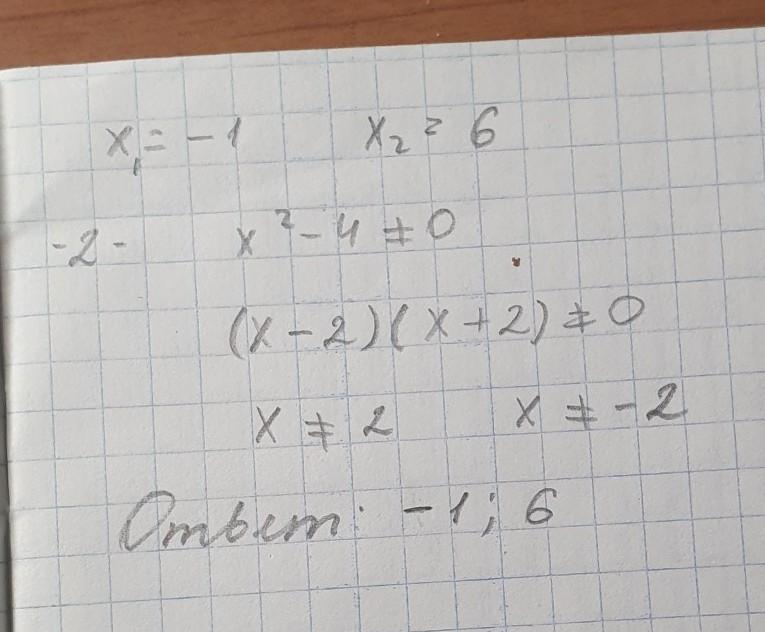 x₁ = -1 x₂ = 6
-2- x² - 4 ≠ 0
(x - 2)(x + 2) ≠ 0
x ≠ 2 x ≠ -2
Ответ: -1; 6